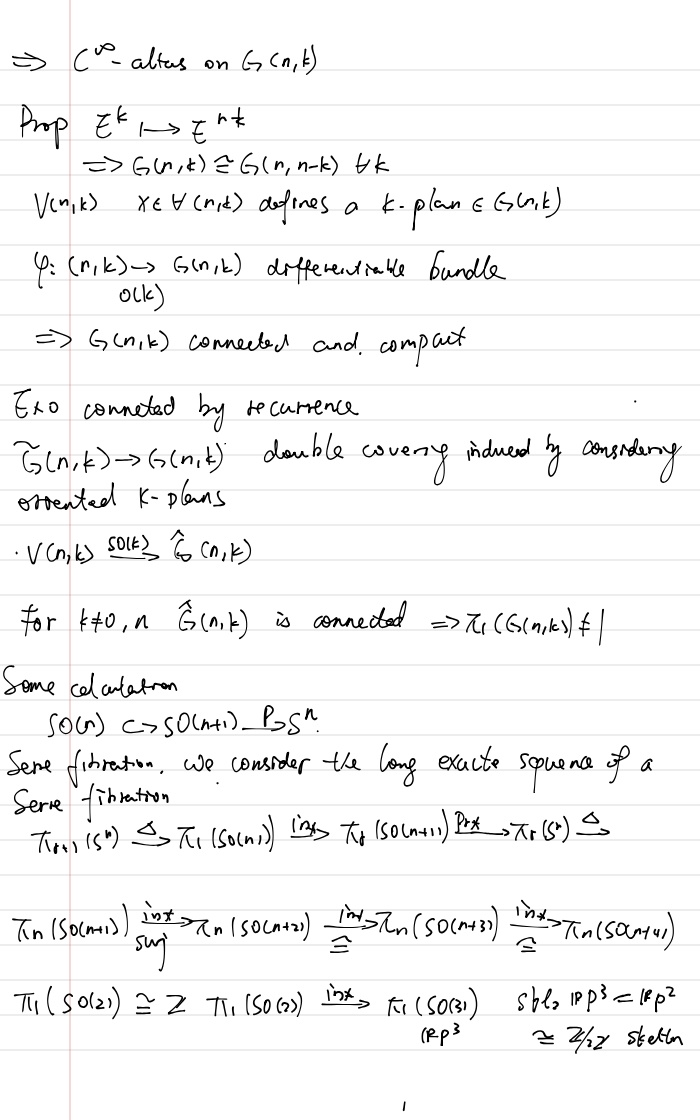 ⇒ C^∞-altas on G(n,k)
Prop E^k ↦ E^{n-k}
⇒ G(n,k) ≅ G(n,n-k) ∀k
V(n,k) x∈V(n,k) defines a k-plan ∈ G(n,k)
φ: (n,k) → G(n,k) differentiable bundle
O(k)
⇒ G(n,k) connected and. compact
Exo conneted by recurrence
G̃(n,k) → G(n,k) double covery indued by considery
oriented k-plans
· V(n,k) —SO(k)→ Ĝ(n,k)
for k≠0,n Ĝ(n,k) is connected ⇒ π_1(G(n,k)) ≠ 1
Some calculation
SO(n) ↪ SO(n+1) —P→ S^n.
Serre fibration. We consider the long exacte squence of a
Serre fibration
π_{r+1}(S^n) —Δ→ π_r(SO(n)) —in*→ π_r(SO(n+1)) —pr*→ π_r(S^n) —Δ→
π_n(SO(n+1)) —in*→ π_n(SO(n+2)) —in*→ π_n(SO(n+3)) —in*→ π_n(SO(n+4))
surj ≅ ≅
π_1(SO(2)) ≅ Z π_1(SO(2)) —in*→ π_1(SO(3)) RP^3 = RP^2
RP^3 ≅ Z/2Z